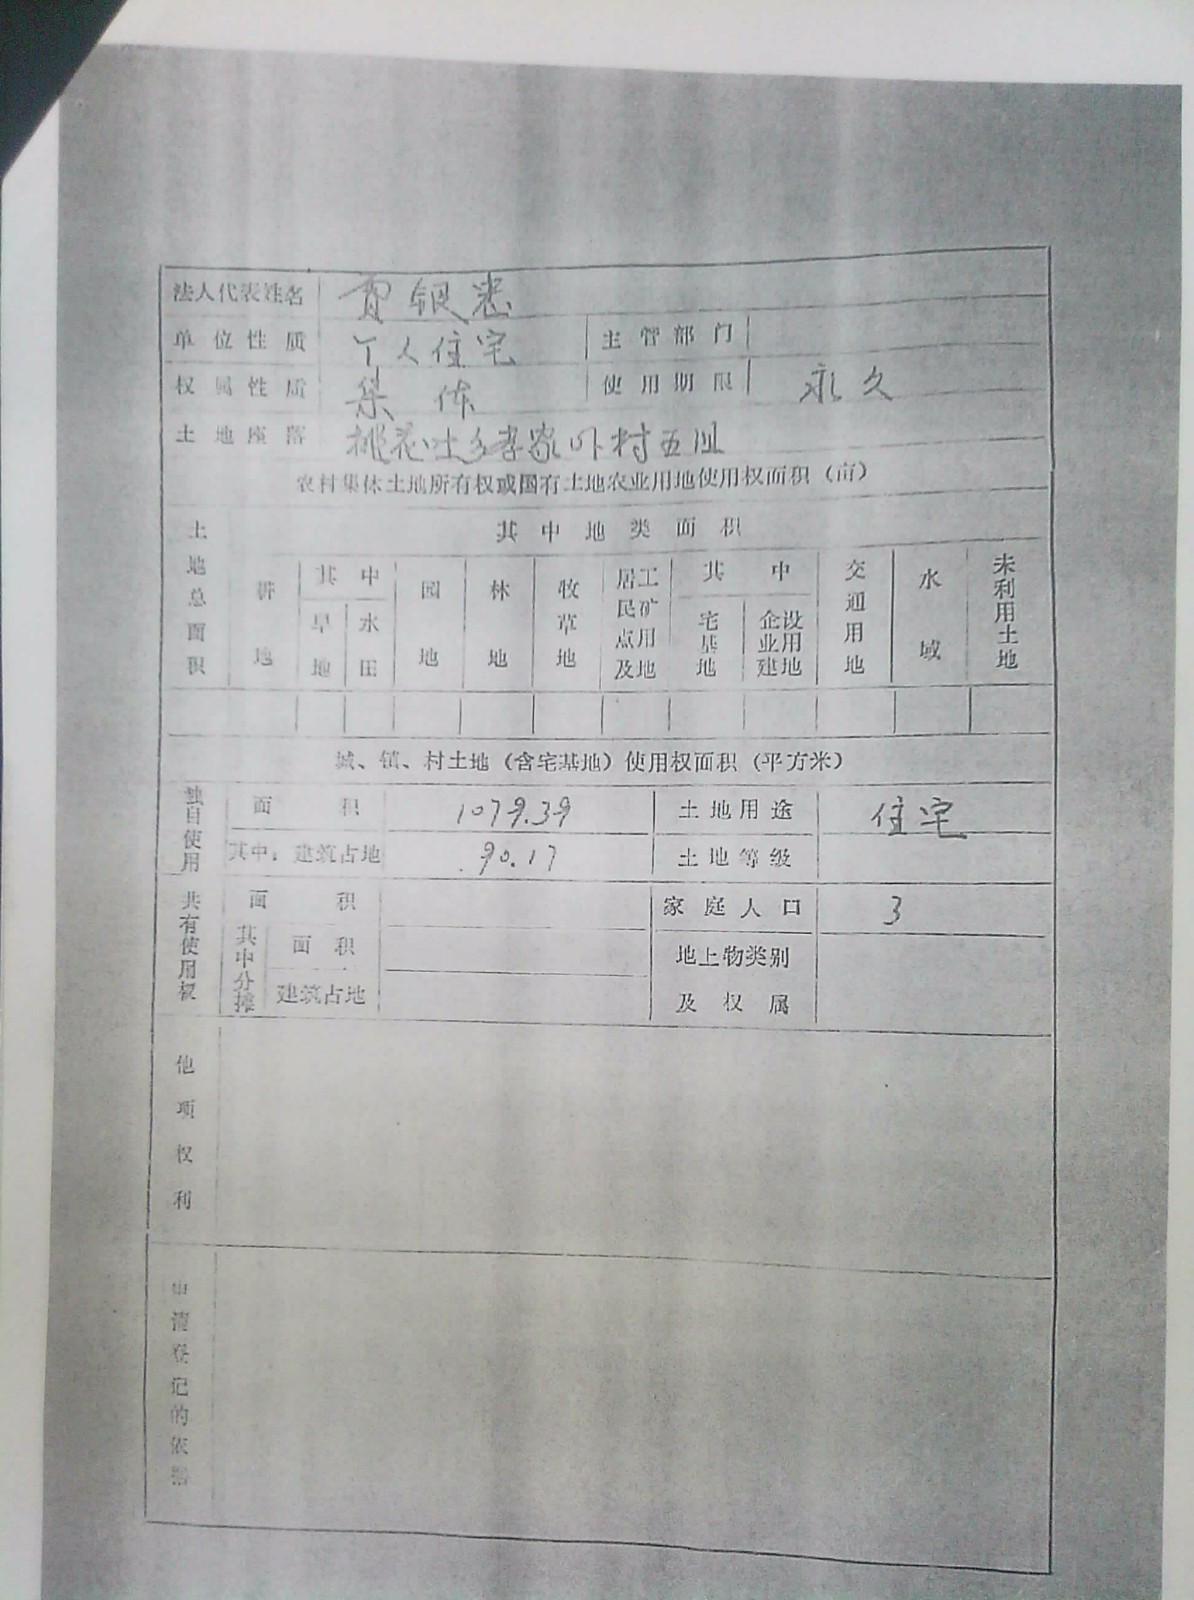 法人代表姓名 贾银
单位性质 个人住宅 主管部门
权属性质 集体 使用期限 永久
土地座落 桃花吐乡 村五组
农村集体土地所有权或国有土地农业用地使用权面积（亩）
土地总面积 其中地类面积
耕地 其中 旱地 水田 园地 林地 牧草地 居民点及工矿用地 其中 宅基地 企业建设用地 交通用地 水域 未利用土地
城、镇、村土地（含宅基地）使用权面积（平方米）
独自使用 面积 1079.39 土地用途 住宅
其中：建筑占地 90.17 土地等级
共有使用权 面积 家庭人口 3
其中分摊 面积 地上物类别
建筑占地 及权属
他项权利
申请登记的依据